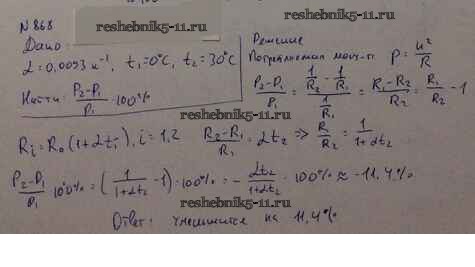 reshebnik5-11.ru
N 868
reshebnik5-11.ru
Дано:
α = 0,0043 К⁻¹, t₁ = 0°C, t₂ = 30°C
Найти: (P₂-P₁)/P₁ · 100%
Решение
Потребляемая мощ-ть P = U²/R
(P₂-P₁)/P₁ = (1/R₂ - 1/R₁)/(1/R₁) = (R₁-R₂)/R₂ = R₁/R₂ - 1
reshebnik5-11.ru
Rᵢ = R₀(1+αtᵢ), i = 1,2 (R₂-R₁)/R₁ = αt₂ => R₁/R₂ = 1/(1+αt₂)
reshebnik5-11.ru
(P₂-P₁)/P₁ · 100% = (1/(1+αt₂) - 1) · 100% = - αt₂/(1+αt₂) · 100% ≈ -11,4%.
reshebnik5-11.ru
Ответ: уменьшится на 11,4%